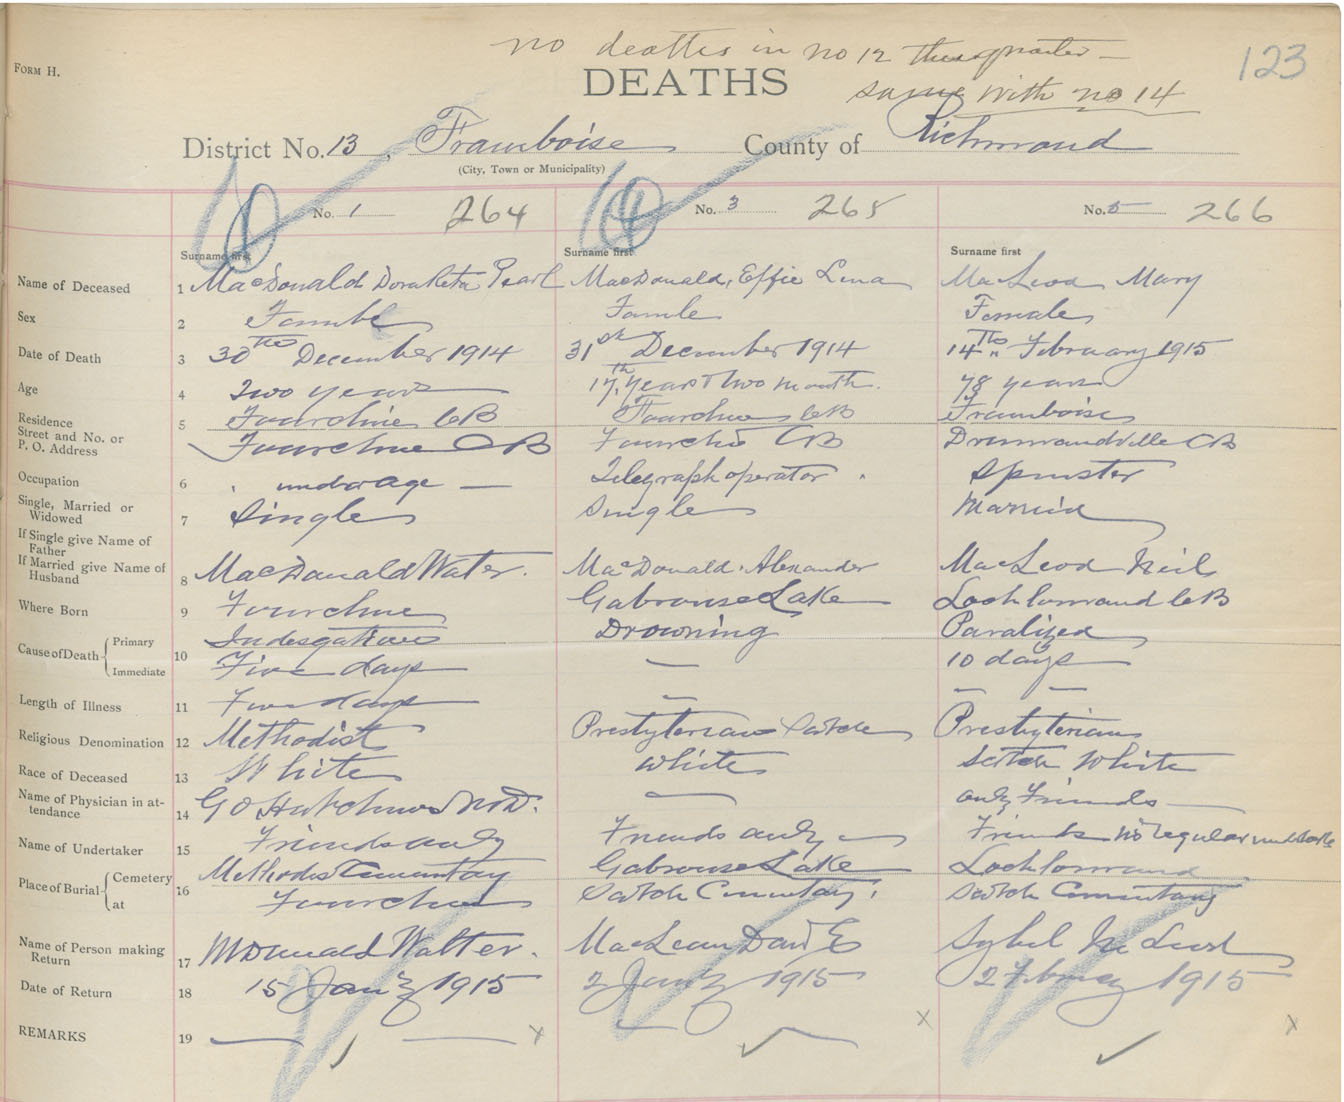 no deaths in no 12 this quarter —
FORM H.
DEATHS
123
same with no 14
District No. 13, Framboise County of Richmond
(City, Town or Municipality)
No. 1 264 No. 3 265 No. 5 266
Surname first Surname first Surname first
Name of Deceased 1 MacDonald Pearl MacDonald, Effie Lena MacLeod Mary
Sex 2 Female
Date of Death 3 30th December 1914 31st December 1914 14th February 1915
Age 4 Two years 17 years Two month. 78 years
Residence 5 CB CB Framboise
Street and No. or
P. O. Address CB CB CB
Occupation 6 under age — Telegraph operator. Spinster
Single, Married or
Widowed 7 Single Single Married
If Single give Name of
Father
If Married give Name of
Husband 8 MacDonald Water. MacDonald. Alexander MacLeod Neil
Where Born 9 Fourchue Gabrouse Lake CB
Cause of Death Primary Drowning Paralized
Immediate 10 Five days — 10 days
Length of Illness 11 — — —
Religious Denomination 12 Methodist Presbyterian Presbyterian
Race of Deceased 13 White White White
Name of Physician in at-
tendance 14 G O MD. — only Friends —
Name of Undertaker 15 Friends only Friends only — Friends No regular
Place of Burial Cemetery Methodist Gabrouse Lake
at 16
Name of Person making
Return 17 McDonald Walter. MacLean Sybel
Date of Return 18 15 Jany 1915 2 Jany 1915 2 1915
REMARKS 19 — —